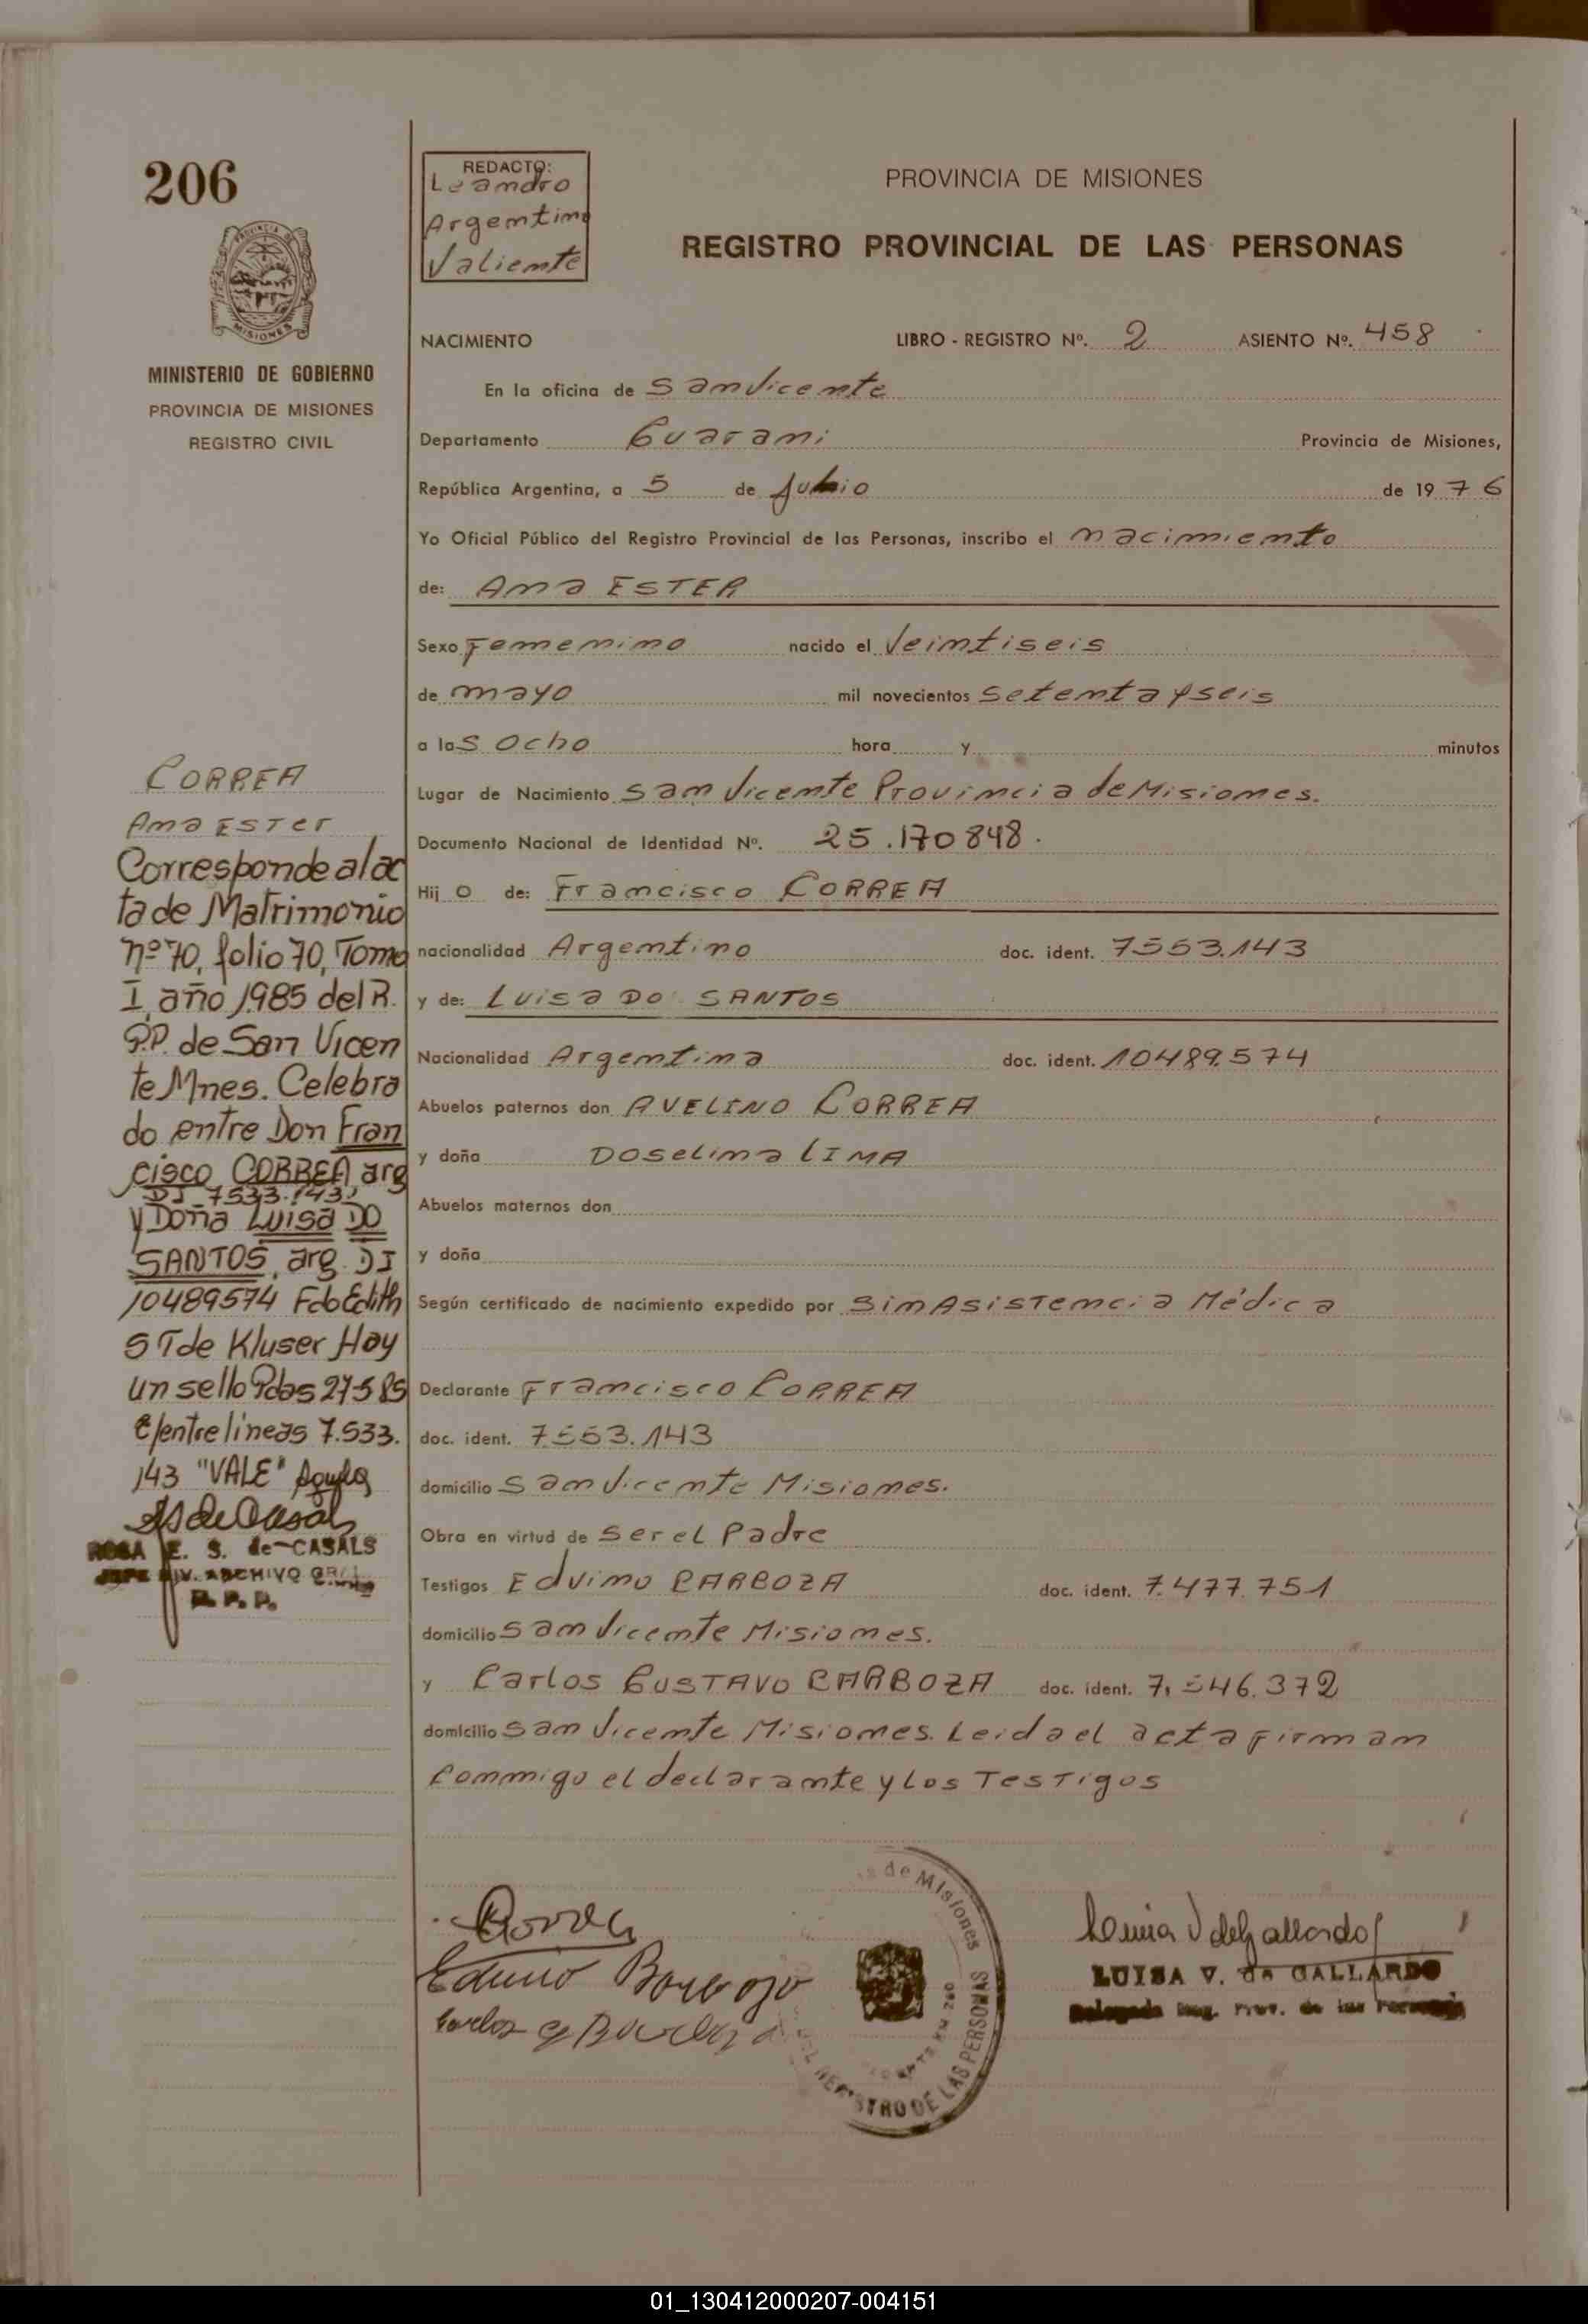 206
MINISTERIO DE GOBIERNO
PROVINCIA DE MISIONES
REGISTRO CIVIL
CORREA
Ana ESTer
Corresponde al ac
ta de Matrimonio
nº 70, folio 70, Tomo
I, año 1985 del R.
P.P. de San Vicen
te Mnes. Celebra
do entre Don Fran
cisco CORREA arg
DI 7533.143,
y Doña Luisa DO
SANTOS, arg. DI
10489574 Fdo Edith
S T de Kluser Hay
un sello Pdas 27-5 85
E/entre lineas 7.533.
143 "VALE"
ROSA E. S. de CASALS
JEFE DIV. ARCHIVO GRAL
R. P. P.
REDACTO:
Leandro
Argentino
Valiente
PROVINCIA DE MISIONES
REGISTRO PROVINCIAL DE LAS PERSONAS
NACIMIENTO LIBRO - REGISTRO Nº. 2 ASIENTO Nº. 458
En la oficina de San Vicente
Departamento Guarani Provincia de Misiones,
República Argentina, a 5 de Julio de 1976
Yo Oficial Público del Registro Provincial de las Personas, inscribo el nacimiento
de: Ana ESTER
Sexo Femenino nacido el Veintiseis
de mayo mil novecientos Setenta y seis
a las Ocho hora y minutos
Lugar de Nacimiento San Vicente Provincia de Misiones.
Documento Nacional de Identidad Nº. 25.170848.
Hijo de: Francisco CORREA
nacionalidad Argentino doc. ident. 7553.143
y de: Luisa DO SANTOS
Nacionalidad Argentina doc. ident. 10489.574
Abuelos paternos don AVELINO CORREA
y doña Doselina LIMA
Abuelos maternos don
y doña
Según certificado de nacimiento expedido por Sin Asistencia Médica
Declarante Francisco CORREA
doc. ident. 7553.143
domicilio San Vicente Misiones.
Obra en virtud de Ser el Padre
Testigos Eduino BARBOZA doc. ident. 7.477.751
domicilio San Vicente Misiones.
y Carlos GUSTAVO BARBOZA doc. ident. 7.546.372
domicilio San Vicente Misiones. Leida el acta firman
Conmigo el declarante y los Testigos
Correa
Eduino Barboza
Carlos G Barboza
de Misiones
REGISTRO DE LAS PERSONAS
Luisa V de Gallardo
LUISA V. de GALLARDO
Delegada Reg. Prov. de las Personas
01_130412000207-004151